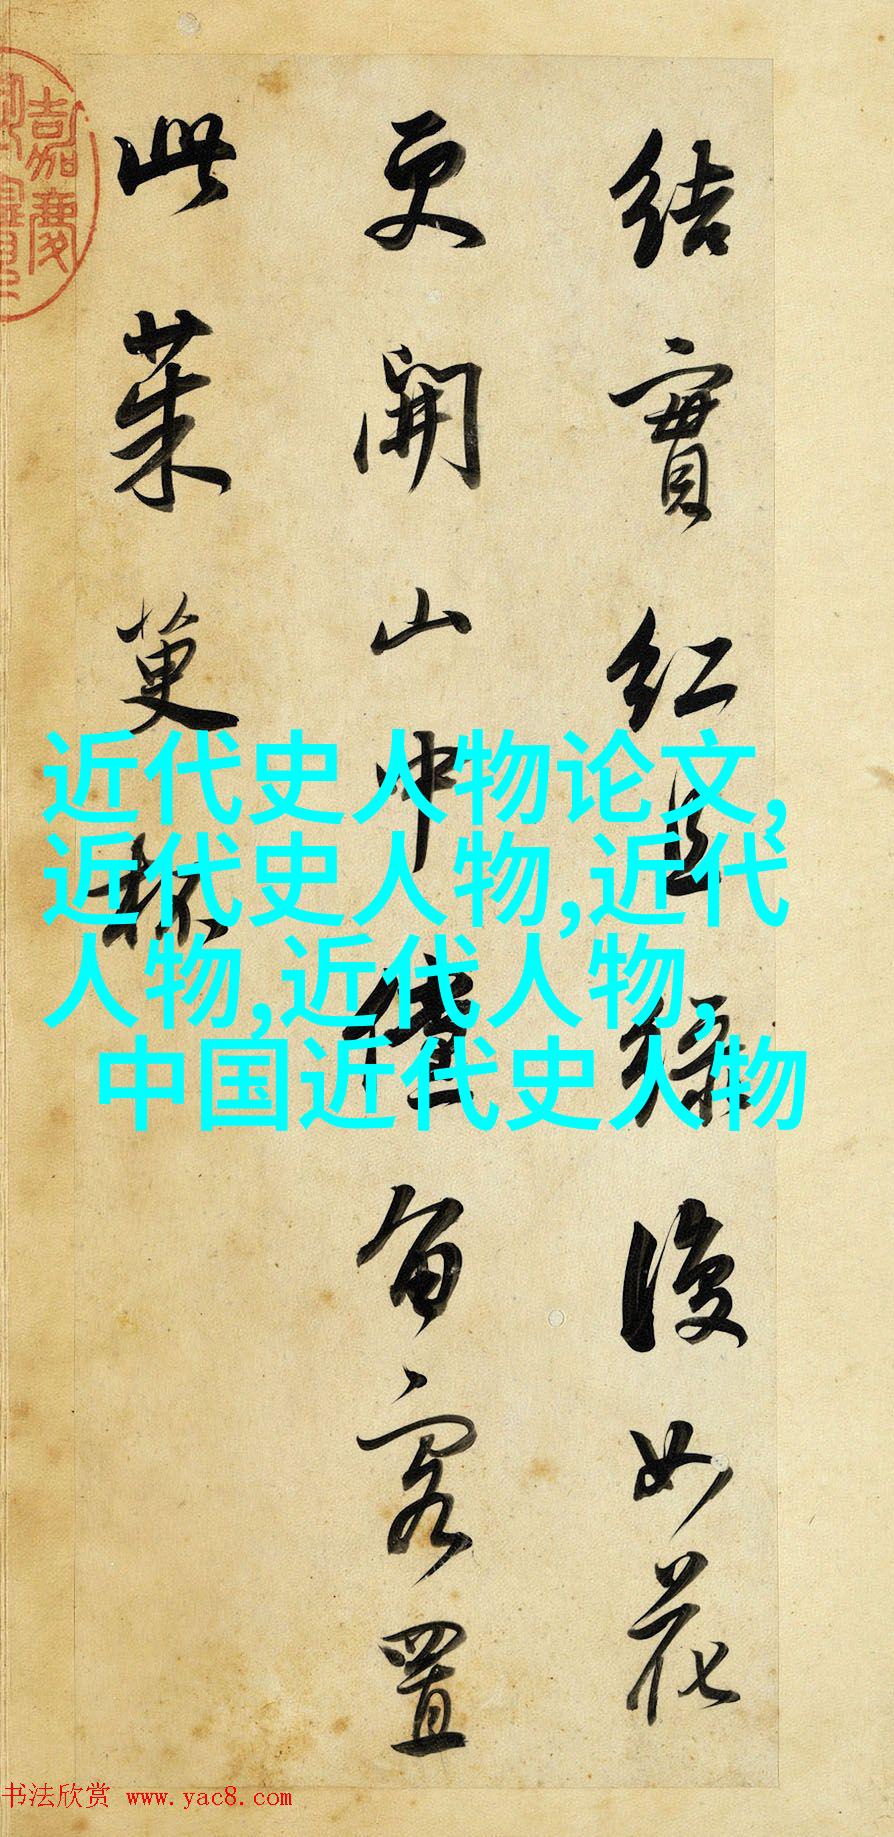 結實紅且綠復如花
更開山中儻留客置
此茱萸杯
嘉慶
近代史人物论文,
近代史人物,近代
人物,近代人物,
中国近代史人物
书法欣赏 www.yac8.com